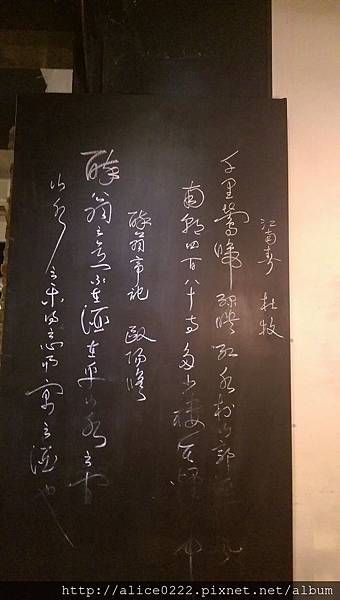 江南春 杜牧
千里鶯啼綠映紅水村山郭酒 風
南朝四百八十寺多少樓台煙 中
醉翁亭記 歐陽修
醉翁之意不在酒在乎山水之間
山水之樂得之心而寓之酒也
http://alice0222.pixnet.net/album